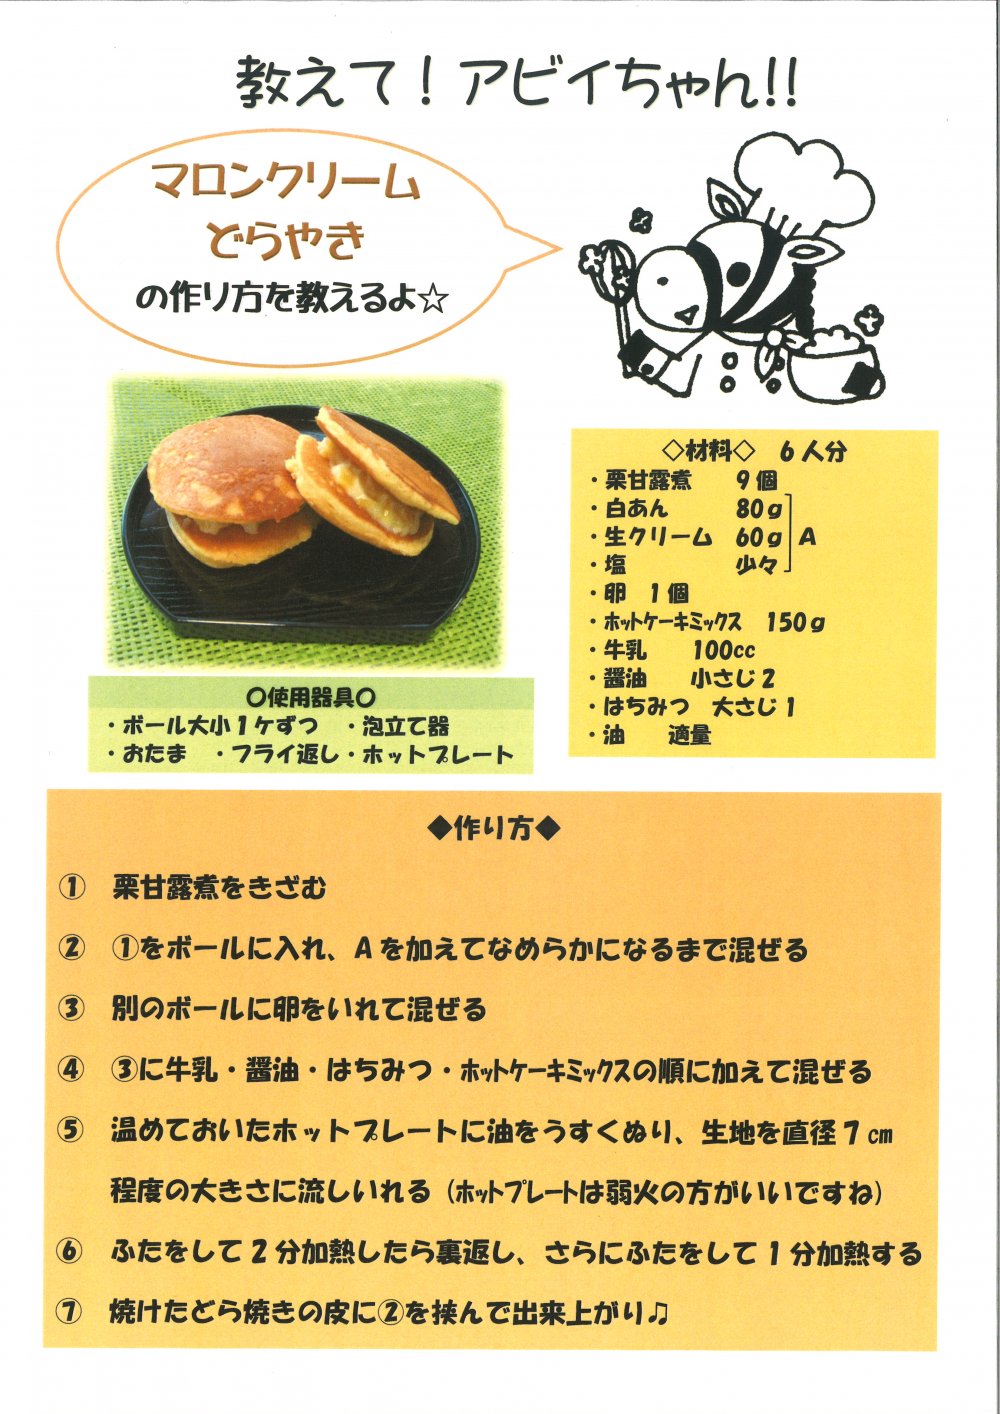 教えて！アビイちゃん!!
マロンクリーム
どらやき
の作り方を教えるよ☆
◇材料◇　6人分
・栗甘露煮　9個
・白あん　80g
・生クリーム　60g　A
・塩　少々
・卵　1個
・ホットケーキミックス　150g
・牛乳　100cc
・醤油　小さじ2
・はちみつ　大さじ1
・油　適量
○使用器具○
・ボール大小1ケずつ　・泡立て器
・おたま　・フライ返し・ホットプレート
◆作り方◆
①　栗甘露煮をきざむ
②　①をボールに入れ、Aを加えてなめらかになるまで混ぜる
③　別のボールに卵をいれて混ぜる
④　③に牛乳・醤油・はちみつ・ホットケーキミックスの順に加えて混ぜる
⑤　温めておいたホットプレートに油をうすくぬり、生地を直径7cm
程度の大きさに流しいれる（ホットプレートは弱火の方がいいですね）
⑥　ふたをして2分加熱したら裏返し、さらにふたをして1分加熱する
⑦　焼けたどら焼きの皮に②を挟んで出来上がり♫